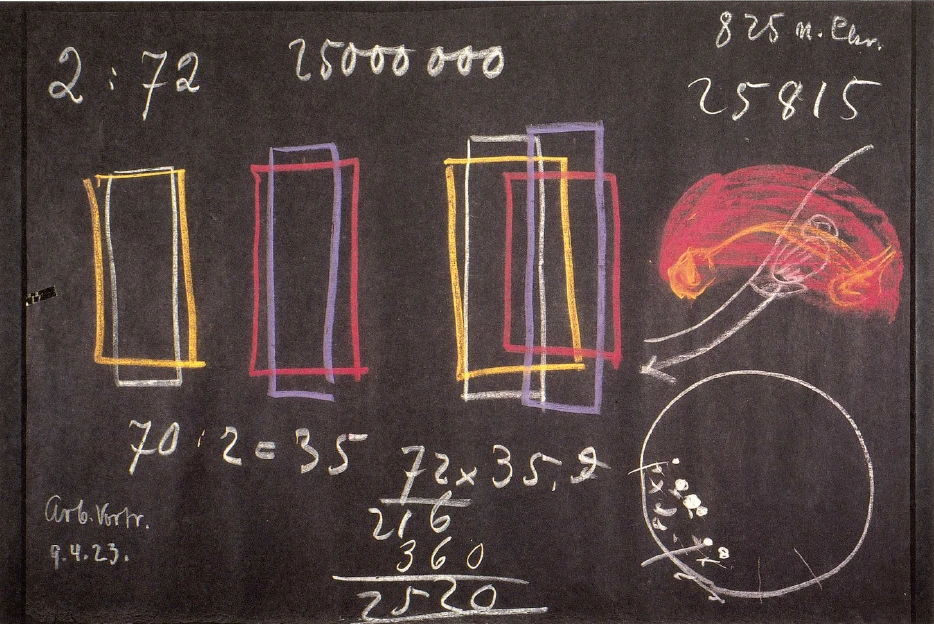 2 : 72
25000 000
825 n. Chr.
25815
70 : 2 = 35
72 x 35,
216
360
2520
Arb. Vortr.
9.4.23.